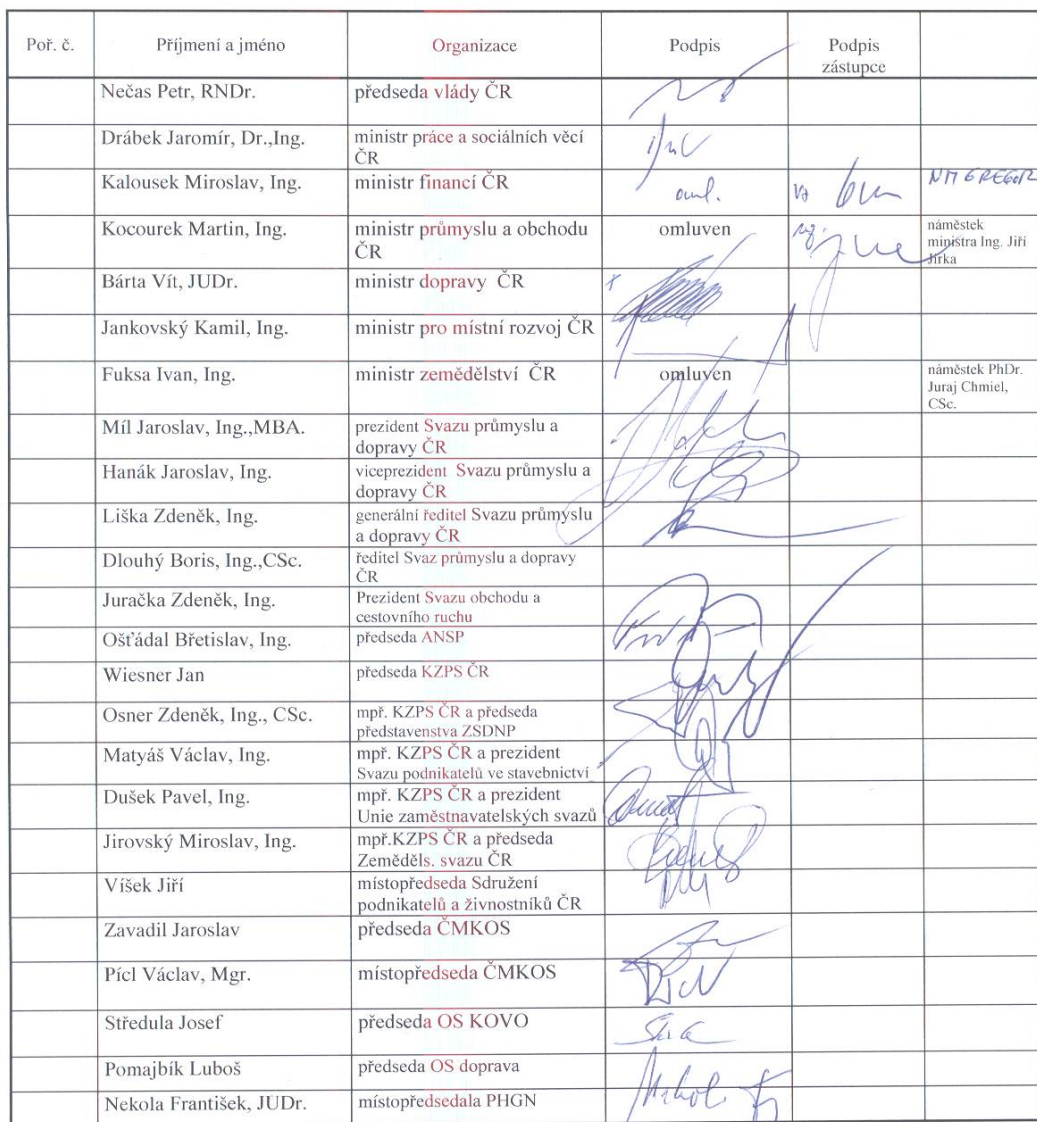 Poř. č. Příjmení a jméno Organizace Podpis Podpis
zástupce
Nečas Petr, RNDr. předseda vlády ČR
Drábek Jaromír, Dr.,Ing. ministr práce a sociálních věcí
ČR
Kalousek Miroslav, Ing. ministr financí ČR oml. NM GREGOR
Kocourek Martin, Ing. ministr průmyslu a obchodu omluven náměstek
ČR ministra Ing. Jiří
Jirka
Bárta Vít, JUDr. ministr dopravy ČR
Jankovský Kamil, Ing. ministr pro místní rozvoj ČR
Fuksa Ivan, Ing. ministr zemědělství ČR omluven náměstek PhDr.
Juraj Chmiel,
CSc.
Míl Jaroslav, Ing.,MBA. prezident Svazu průmyslu a
dopravy ČR
Hanák Jaroslav, Ing. viceprezident Svazu průmyslu a
dopravy ČR
Liška Zdeněk, Ing. generální ředitel Svazu průmyslu
a dopravy ČR
Dlouhý Boris, Ing.,CSc. ředitel Svaz průmyslu a dopravy
ČR
Juračka Zdeněk, Ing. Prezident Svazu obchodu a
cestovního ruchu
Ošťádal Břetislav, Ing. předseda ANSP
Wiesner Jan předseda KZPS ČR
Osner Zdeněk, Ing., CSc. mpř. KZPS ČR a předseda
představenstva ZSDNP
Matyáš Václav, Ing. mpř. KZPS ČR a prezident
Svazu podnikatelů ve stavebnictví
Dušek Pavel, Ing. mpř. KZPS ČR a prezident
Unie zaměstnavatelských svazů
Jirovský Miroslav, Ing. mpř.KZPS ČR a předseda
Zeměděls. svazu ČR
Víšek Jiří místopředseda Sdružení
podnikatelů a živnostníků ČR
Zavadil Jaroslav předseda ČMKOS
Pícl Václav, Mgr. místopředseda ČMKOS
Středula Josef předseda OS KOVO
Pomajbík Luboš předseda OS doprava
Nekola František, JUDr. místopředsedala PHGN